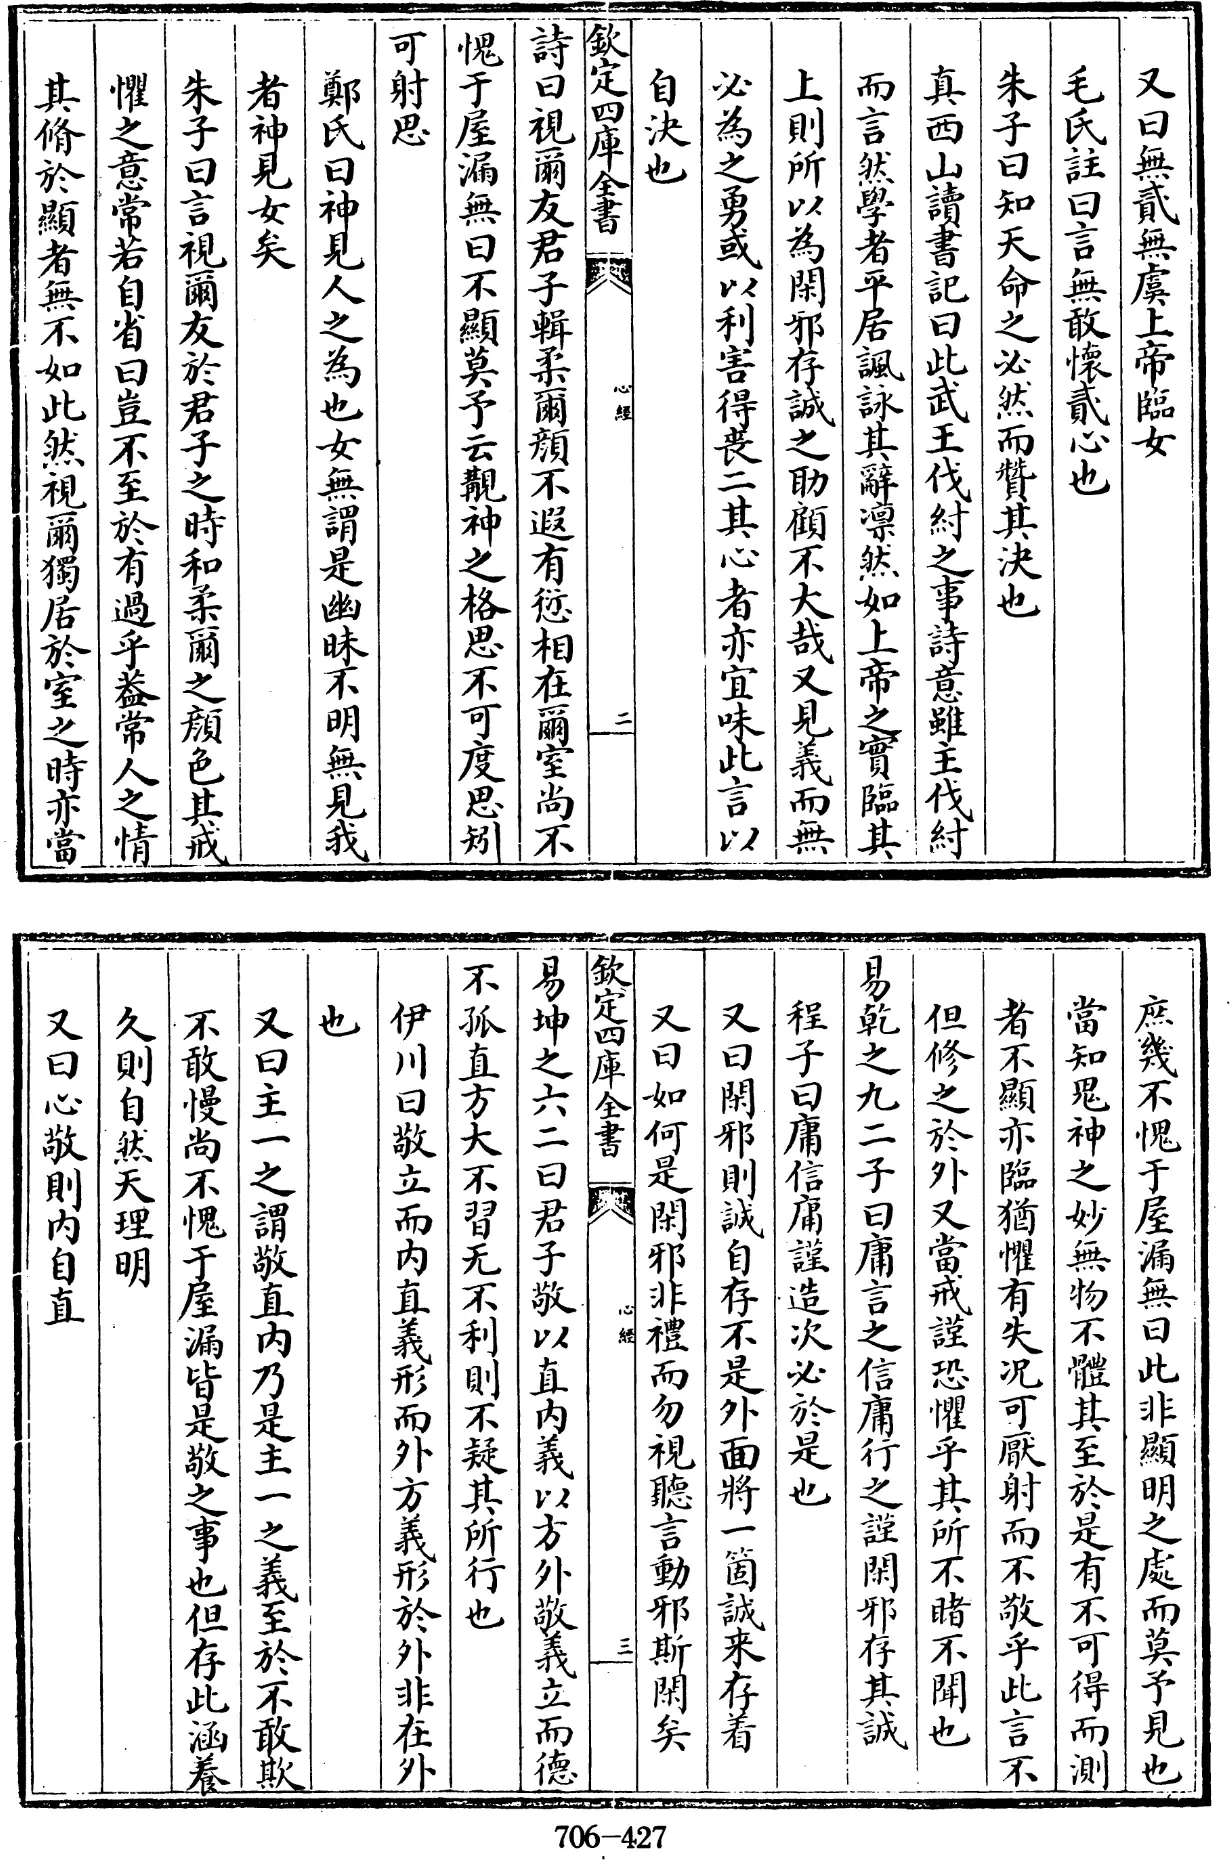 又曰無貳無虞上帝臨女
毛氏註曰言無敢懷貳心也
朱子曰知天命之必然而贊其決也
真西山讀書記曰此武王伐紂之事詩意雖主伐紂
而言然學者平居諷詠其辭凛然如上帝之實臨其
上則所以為閑邪存誠之助顧不大哉又見義而無
必為之勇或以利害得喪二其心者亦宜味此言以
自決也
欽定四庫全書
心經
二
詩曰視爾友君子輯柔爾顔不遐有愆相在爾室尚不
愧于屋漏無曰不顯莫予云覯神之格思不可度思矧
可射思
鄭氏曰神見人之為也女無謂是幽昧不明無見我
者神見女矣
朱子曰言視爾友於君子之時和柔爾之顔色其戒
懼之意常若自省曰豈不至於有過乎葢常人之情
其脩於顯者無不如此然視爾獨居於室之時亦當
庶幾不愧于屋漏無曰此非顯明之處而莫予見也
當知鬼神之妙無物不體其至於是有不可得而測
者不顯亦臨猶懼有失况可厭射而不敬乎此言不
但修之於外又當戒謹恐懼乎其所不睹不聞也
易乾之九二子曰庸言之信庸行之謹閑邪存其誠
程子曰庸信庸謹造次必於是也
又曰閑邪則誠自存不是外面將一箇誠来存着
又曰如何是閑邪非禮而勿視聽言動邪斯閑矣
欽定四庫全書
心經
三
易坤之六二曰君子敬以直内義以方外敬義立而德
不孤直方大不習无不利則不疑其所行也
伊川曰敬立而内直義形而外方義形於外非在外
也
又曰主一之謂敬直内乃是主一之義至於不敢欺
不敢慢尚不愧于屋漏皆是敬之事也但存此涵養
久則自然天理明
又曰心敬則内自直
706-427